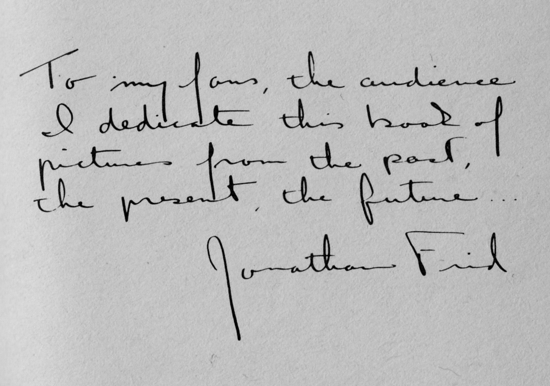 To my fans, the audience
I dedicate this book of
pictures from the past,
the present, the future...
Jonathan Frid